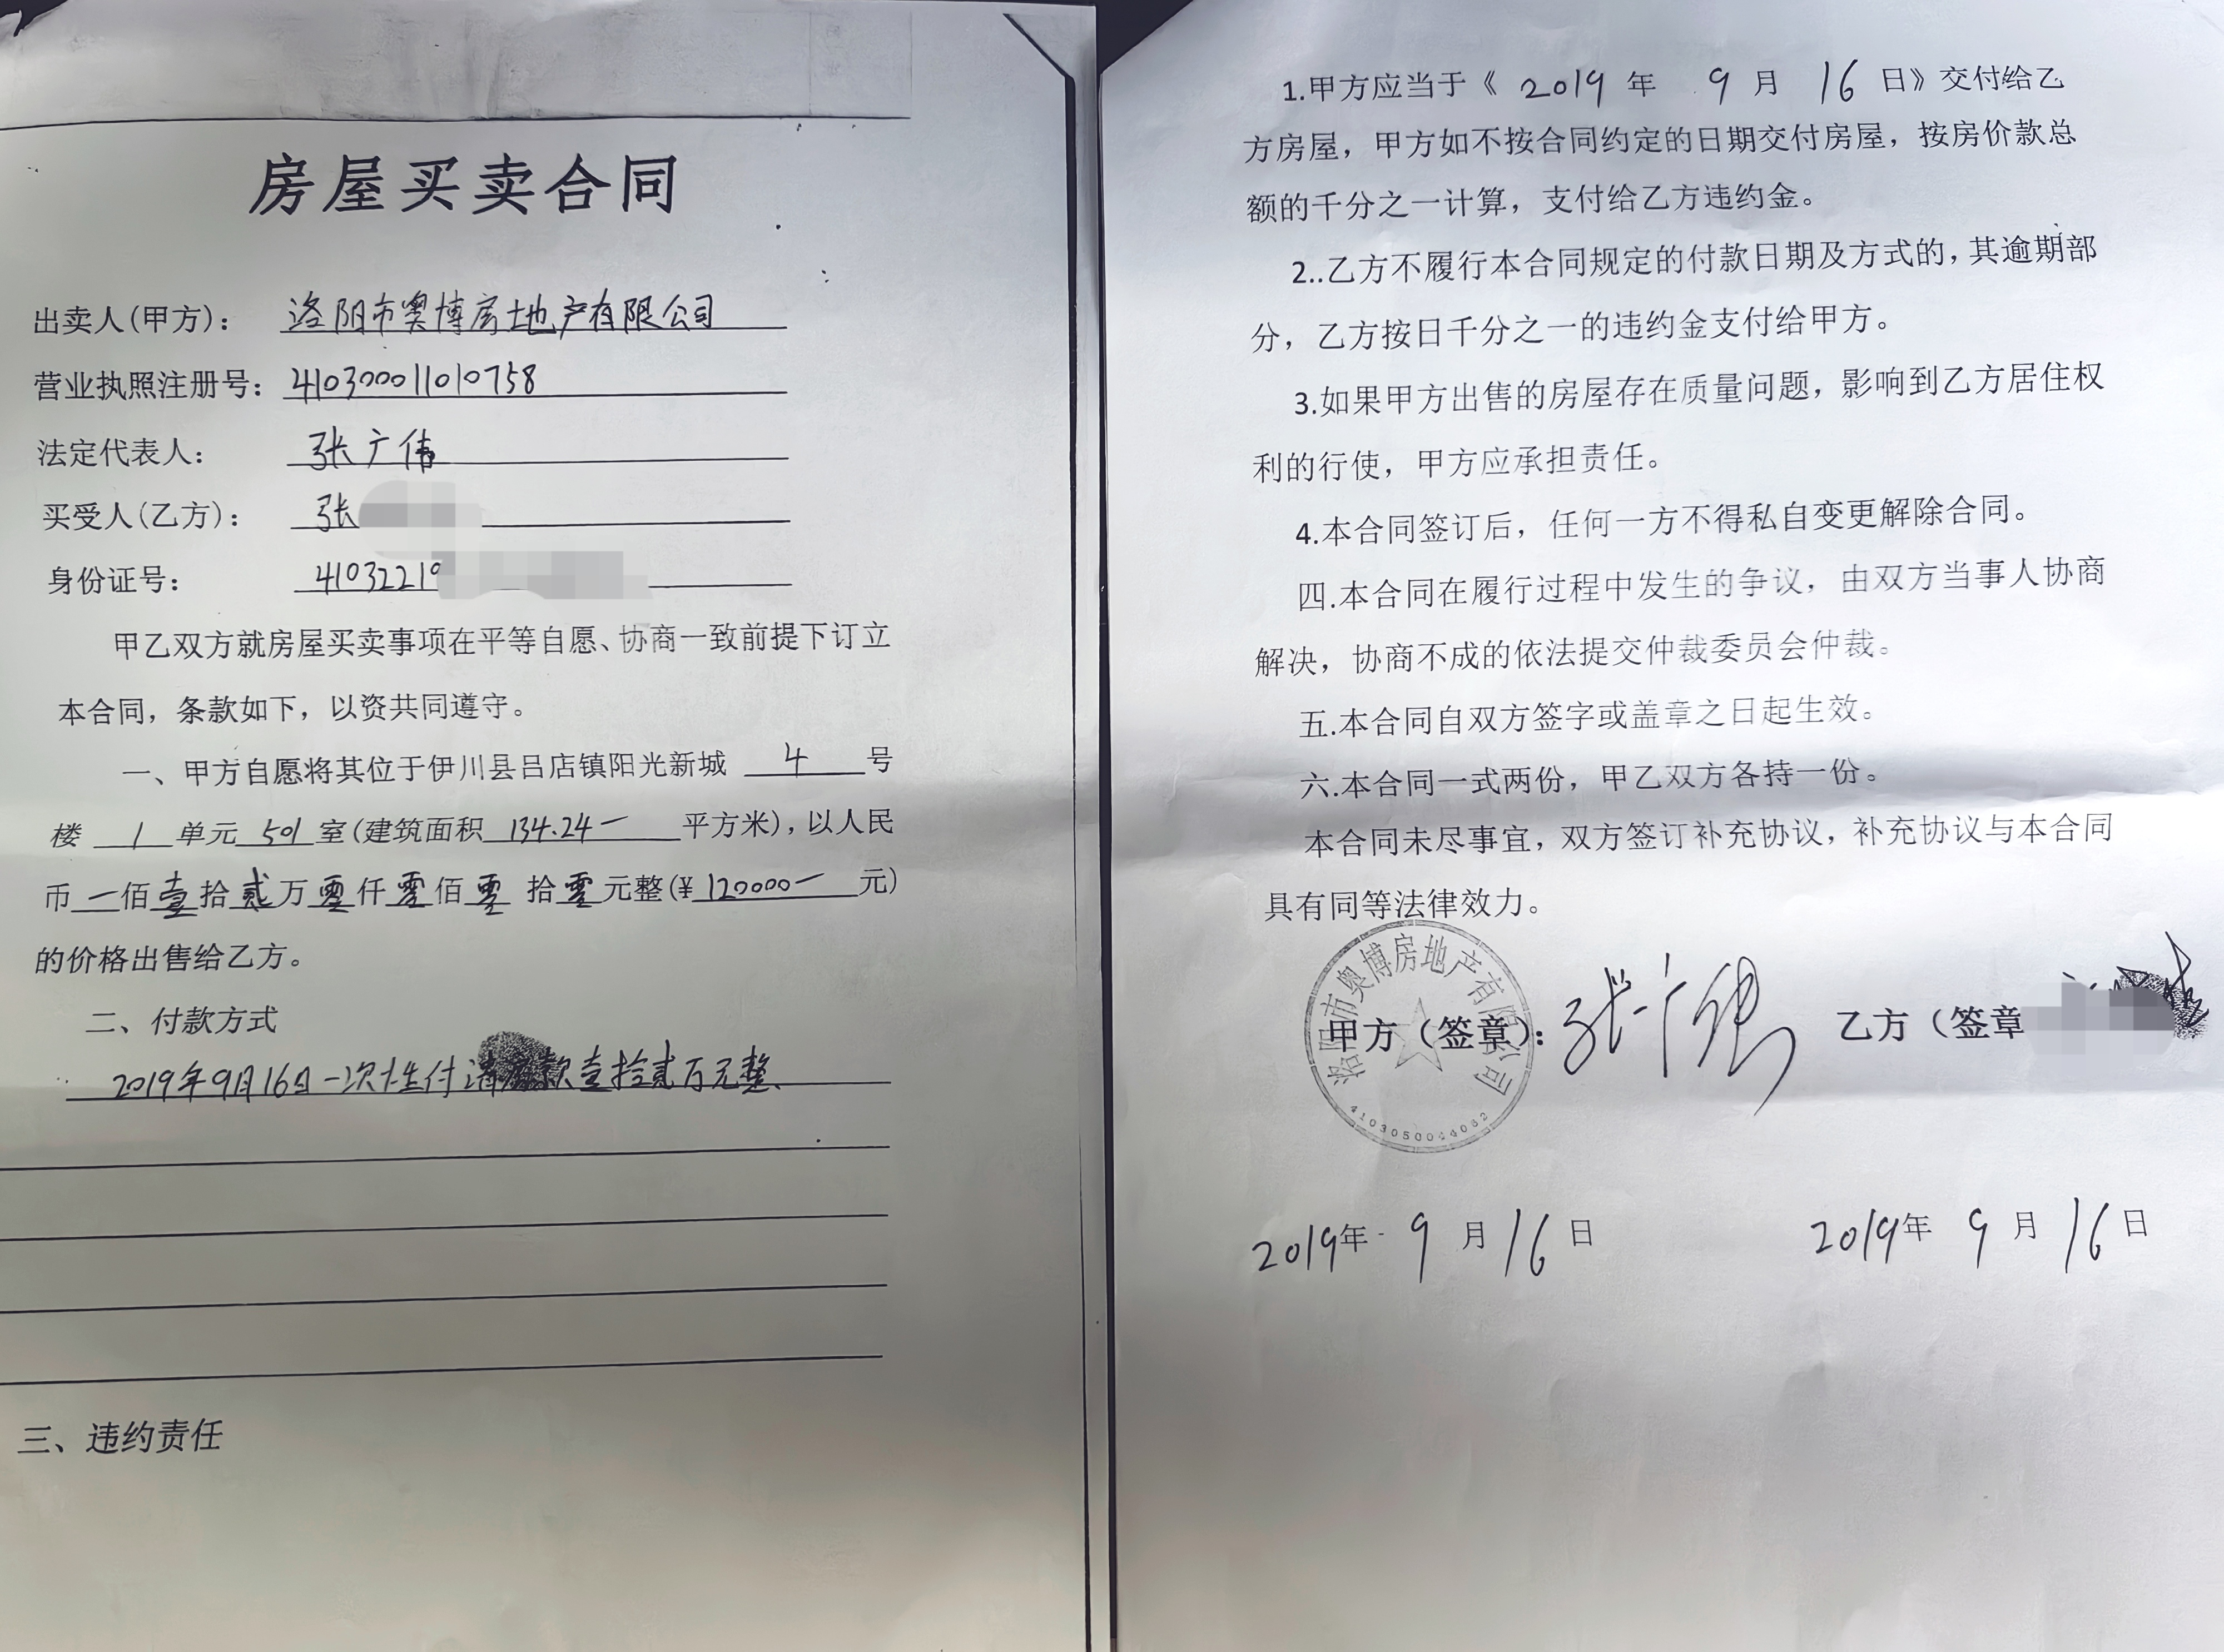 房屋买卖合同
出卖人(甲方)： 洛阳市奥博房地产有限公司
营业执照注册号： 410300011010758
法定代表人： 张广伟
买受人(乙方)： 张
身份证号： 41032219
甲乙双方就房屋买卖事项在平等自愿、协商一致前提下订立
本合同，条款如下，以资共同遵守。
一、甲方自愿将其位于伊川县吕店镇阳光新城 4 号
楼 1 单元 501 室(建筑面积 134.24一 平方米)，以人民
币 一 佰 壹 拾 贰 万 零 仟 零 佰 零 拾 零 元整(¥ 120000一 元)
的价格出售给乙方。
二、付款方式
2019年9月16日一次性付清房款壹拾贰万元整、
三、违约责任
1.甲方应当于《 2019 年 9 月 16 日》交付给乙
方房屋，甲方如不按合同约定的日期交付房屋，按房价款总
额的千分之一计算，支付给乙方违约金。
2..乙方不履行本合同规定的付款日期及方式的，其逾期部
分，乙方按日千分之一的违约金支付给甲方。
3.如果甲方出售的房屋存在质量问题，影响到乙方居住权
利的行使，甲方应承担责任。
4.本合同签订后，任何一方不得私自变更解除合同。
四.本合同在履行过程中发生的争议，由双方当事人协商
解决，协商不成的依法提交仲裁委员会仲裁。
五.本合同自双方签字或盖章之日起生效。
六.本合同一式两份，甲乙双方各持一份。
本合同未尽事宜，双方签订补充协议，补充协议与本合同
具有同等法律效力。
洛阳市奥博房地产有限公司
甲方（签章）： 张广伟 乙方（签章
2019年 9 月 16 日 2019年 9 月 16 日